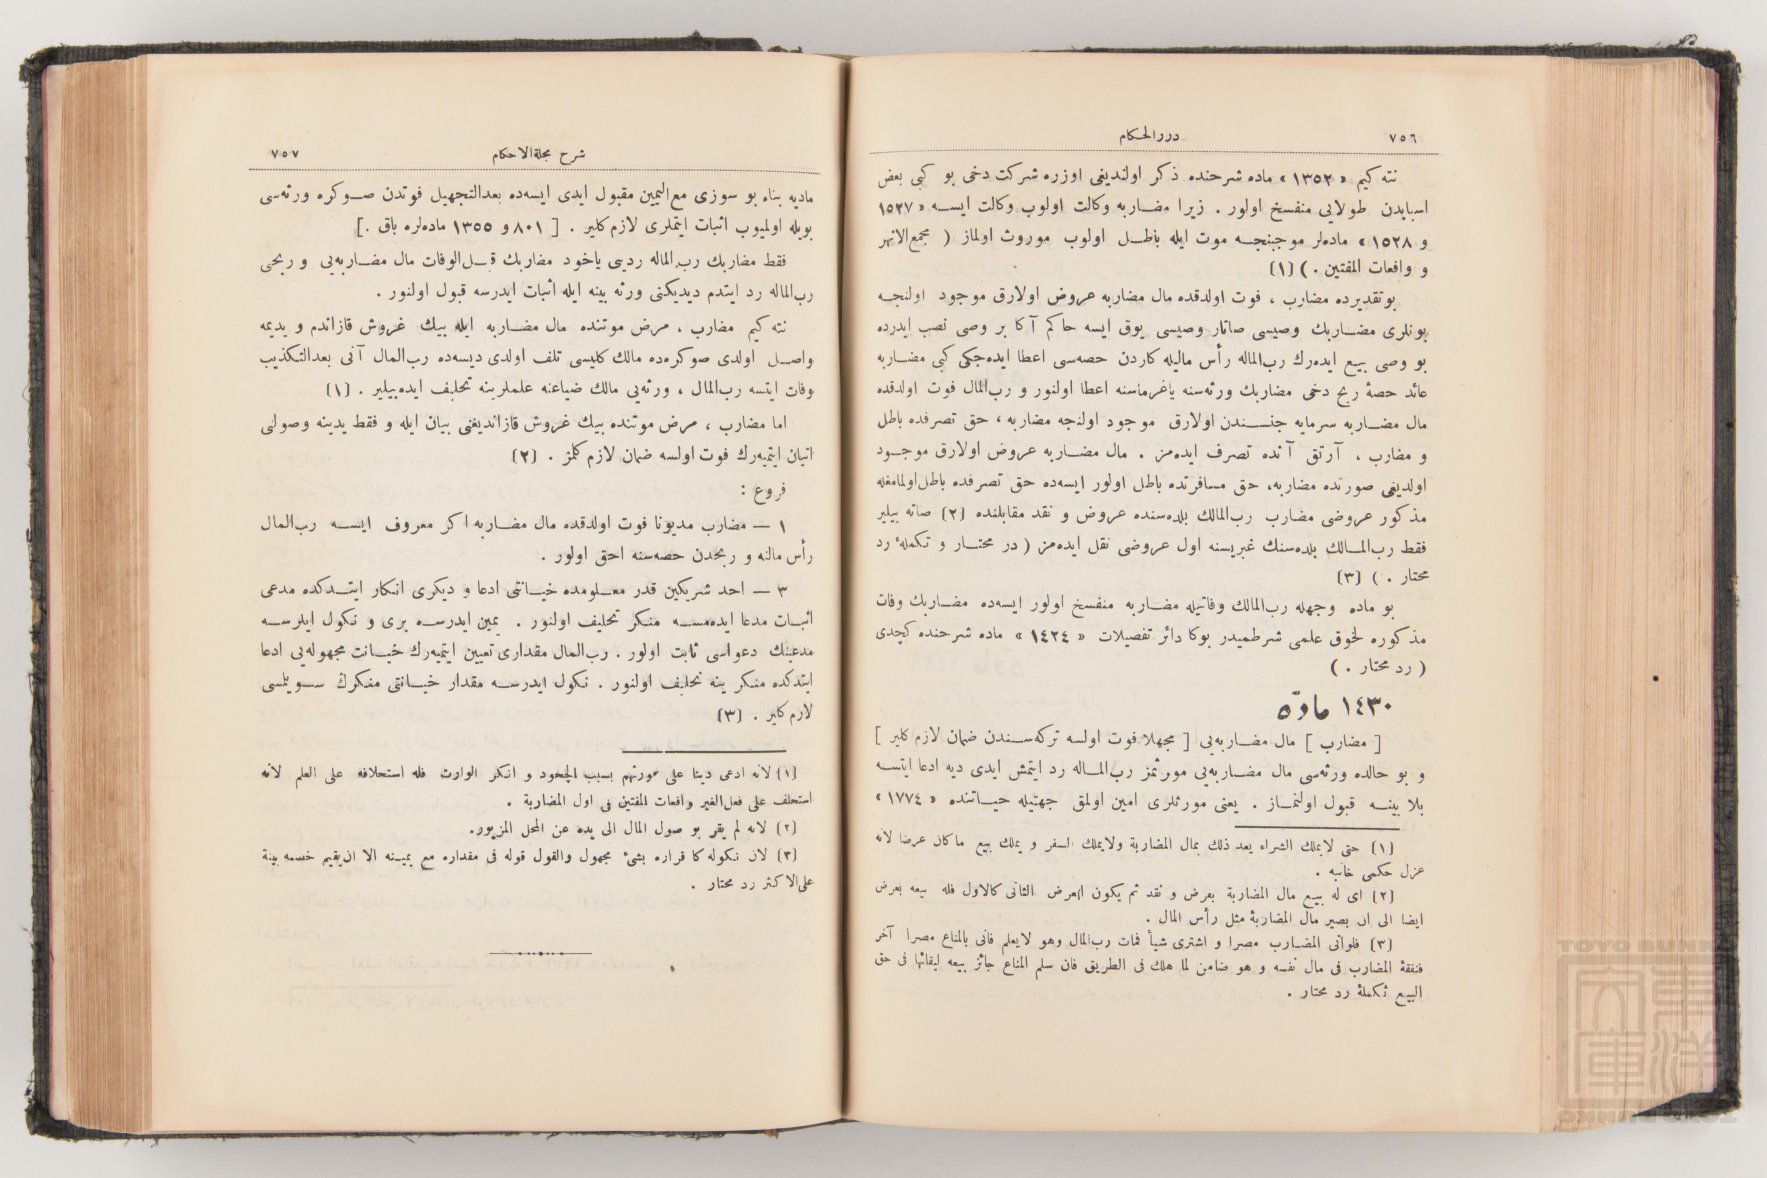 ٧٥٦
دررالحكام
نته كيم « ١٣٥٢ » ماده شرحنده ذكر اولنديغى اوزره شركت دخى بو كبى بعض
اسبابدن طولايى منفسخ اولور . زيرا مضاربه وكالت اولوب وكالت ايسه « ١٥٢٧
و ١٥٢٨ » ماده‌لر موجبنجه موت ايله باطل اولوب موروث اولماز ( مجمع‌الانهر
و واقعات المفتين . ) (١)
بوتقديرده مضارب ، فوت اولدقده مال مضاربه عروض اولارق موجود اولنجه
بونلرى مضاربك وصيسى صاتار وصيسى يوق ايسه حاكم آكا بر وصى نصب ايدرده
بو وصى بيع ايده‌رك رب‌الماله رأس ماليله كاردن حصه‌سى اعطا ايده‌جكى كبى مضاربه
عائد حصۀ ربح دخى مضاربك ورثه‌سنه ياغرماسنه اعطا اولنور و رب‌المال فوت اولدقده
مال مضاربه سرمايه جنسندن اولارق موجود اولنجه مضاربه ، حق تصرفده باطل
و مضارب ، آرتق آنده تصرف ايده‌مز . مال مضاربه عروض اولارق موجود
اولديغى صورتده مضاربه، حق مسافرتده باطل اولور ايسه‌ده حق تصرفده باطل‌اولمامغله
مذكور عروضى مضارب رب‌المالك بلده‌سنده عروض و نقد مقابلنده (٢) صاته بيلير
فقط رب‌المالك بلده‌سنك غيريسنه اول عروضى نقل ايده‌مز ( در مختار و تكملۀ رد
محتار . ) (٣)
بو ماده وجهله رب‌المالك وفاتيله مضاربه منفسخ اولور ايسه‌ده مضاربك وفات
مذكوره لحوق علمى شرطميدر بوكا دائر تفصيلات « ١٤٢٤ » ماده شرحنده كچدى
( رد محتار . )
١٤٣٠ مادّه
[ مضارب ] مال مضاربه‌يى [ مجهلا فوت اولسه تركه‌سندن ضمان لازم كلير ]
و بو حالده ورثه‌سى مال مضاربه‌يى مورثمز رب‌الماله رد ايتمش ايدى ديه ادعا ايتسه
بلا بينه قبول اولنماز . يعنى مورثلرى امين اولمق جهتيله حياتنده « ١٧٧٤ »
(١) حتى لايملك الشراء يعد ذلك بمال المضاربة ولايملك السفر و يملك بيع ماكان عرضا لانه
عزل حكمى خانيه .
(٢) اى له بيع مال المضاربة بعرض و نقد ثم يكون العرض الثانى كالاول فله بيعه بعرض
ايضا الى ان يصير مال المضاربة مثل رأس المال .
(٣) فلوأتى المضارب مصرا و اشترى شيأ فمات رب‌المال وهو لايعلم فاتى بالمتاع مصرا آخر
فنفقة المضارب فى مال نفسه و هو ضامن لما هلك فى الطريق فان سلم المتاع جائز بيعه لبقائها فى حق
البيع تكملۀ رد محتار .
شرح مجلةالاحكام
٧٥٧
ماديه بناه بو سوزى مع‌اليمين مقبول ايدى ايسه‌ده بعدالتجهيل فوتدن صوكره ورثه‌سى
بويله اولميوب اثبات ايتملرى لازم كلير . [ ٨٠١ و ١٣٥٥ ماده‌لره باق . ]
فقط مضاربك رب‌الماله رديى ياخود مضاربك قبل‌الوفات مال مضاربه‌يى و ربحى
رب‌الماله رد ايتدم ديديكنى ورثه بينه ايله اثبات ايدرسه قبول اولنور .
نته كيم مضارب ، مرض موتنده مال مضاربه ايله بيك غروش قازاندم و يديمه
واصل اولدى صوكره‌ده مالك كليسى تلف اولدى ديسه‌ده رب‌المال آنى بعدالتكذيب
وفات ايتسه رب‌المال ، ورثه‌يى مالك ضياعنه علملرينه تحليف ايده‌بيلير . (١)
اما مضارب ، مرض موتنده بيك غروش قازانديغنى بيان ايله و فقط يدينه وصولنى
اتيان ايتميه‌رك فوت اولسه ضمان لازم كلمز . (٢)
فروع :
١ — مضارب مديونا فوت اولدقده مال مضاربه اكر معروف ايسه رب‌المال
رأس مالنه و ربحدن حصه‌سنه احق اولور .
٣ — احد شريكين قدر معلومده خيانتى ادعا و ديكرى انكار ايتدكده مدعى
اثبات مدعا ايده‌مسه منكر تحليف اولنور . يمين ايدرسه برى و نكول ايلرسه
مدعينك دعواسى ثابت اولور . رب‌المال مقدارى تعيين ايتميه‌رك خيانت مجهوله‌يى ادعا
ايتدكده منكر ينه تحليف اولنور . نكول ايدرسه مقدار خيانتى منكرك سويلمسى
لازم كلير . (٣)
(١) لانه ادعى دينا على مورثهم بسبب الجحود و انكر الوارث فله استحلافه على العلم لانه
استحلف على فعل‌الغير واقعات المفتين فى اول المضاربة .
(٢) لانه لم يقر بو صول المال الى يده عن المحل المزبور.
(٣) لان نكوله كا قراره بشئ مجهول والقول قوله فى مقداره مع يمينه الا ان‌يقيم خصمه بينة
على‌الاكثر رد محتار .
TOYO BUNKO